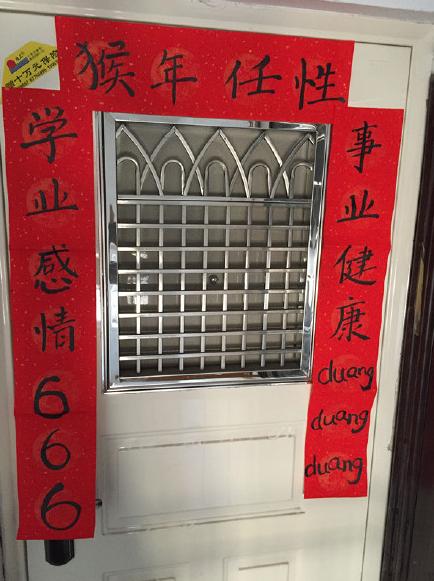 猴年任性
事业健康duang duang duang
学业感情666